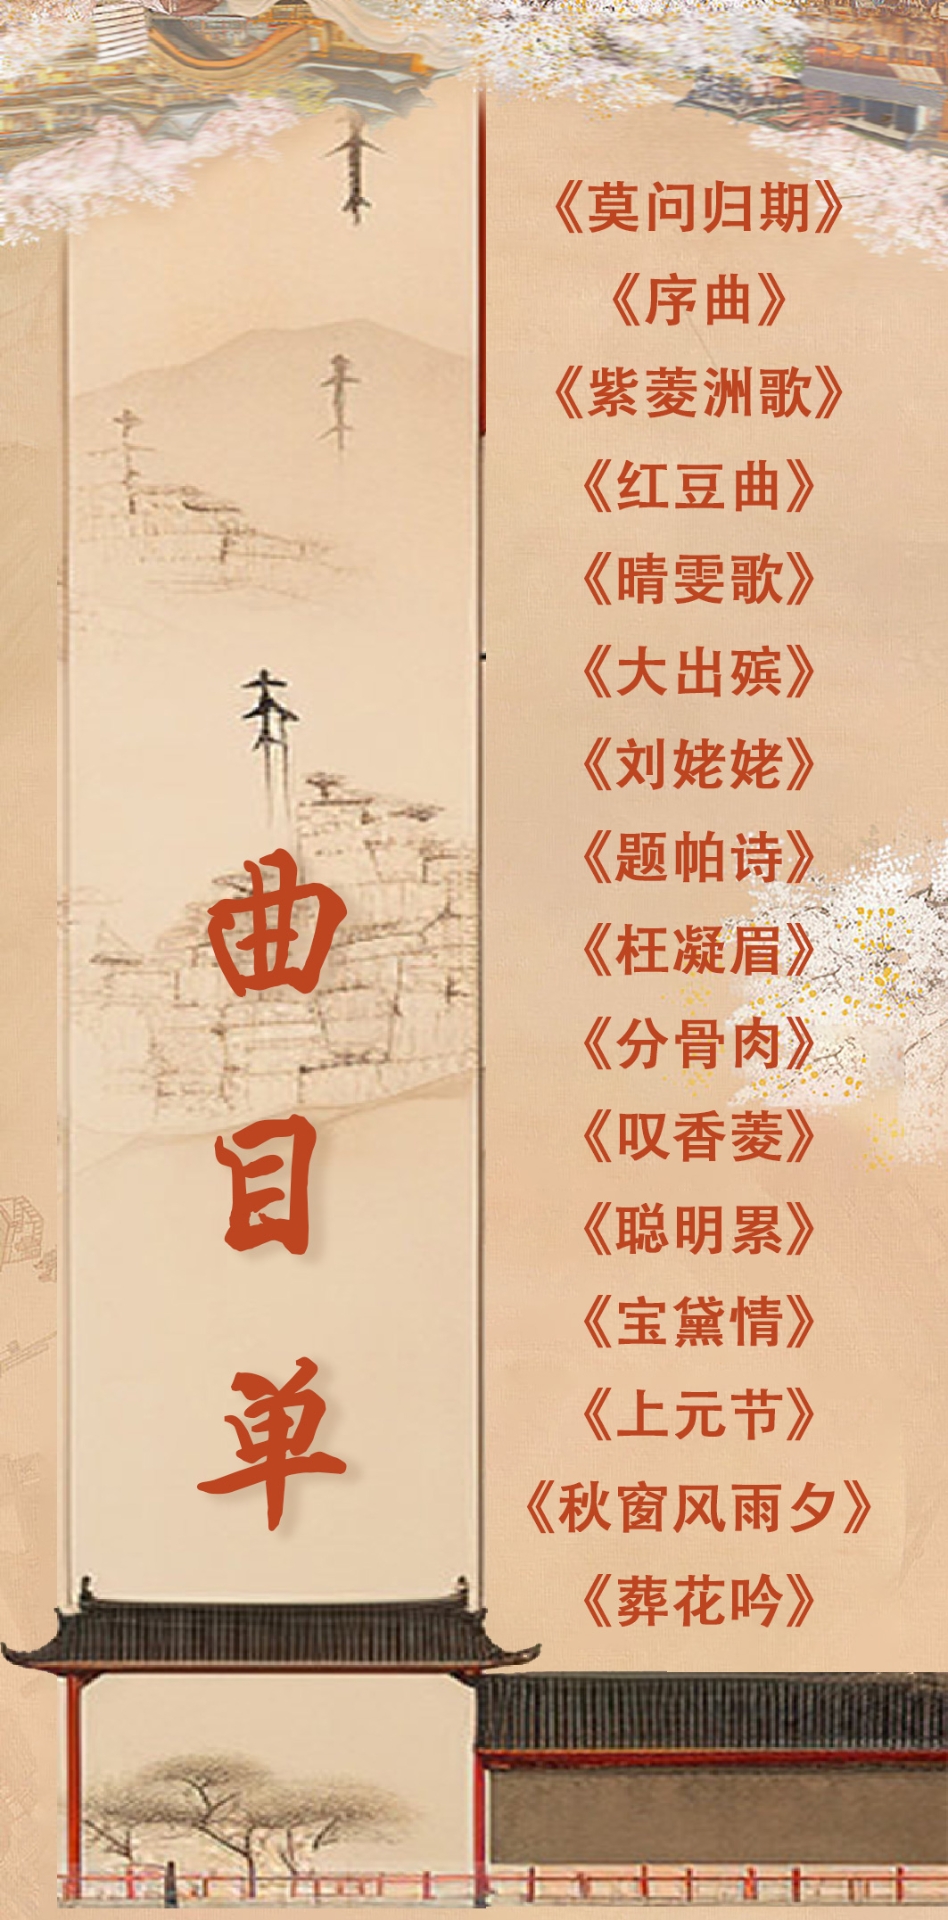 曲目单
《莫问归期》
《序曲》
《紫菱洲歌》
《红豆曲》
《晴雯歌》
《大出殡》
《刘姥姥》
《题帕诗》
《枉凝眉》
《分骨肉》
《叹香菱》
《聪明累》
《宝黛情》
《上元节》
《秋窗风雨夕》
《葬花吟》